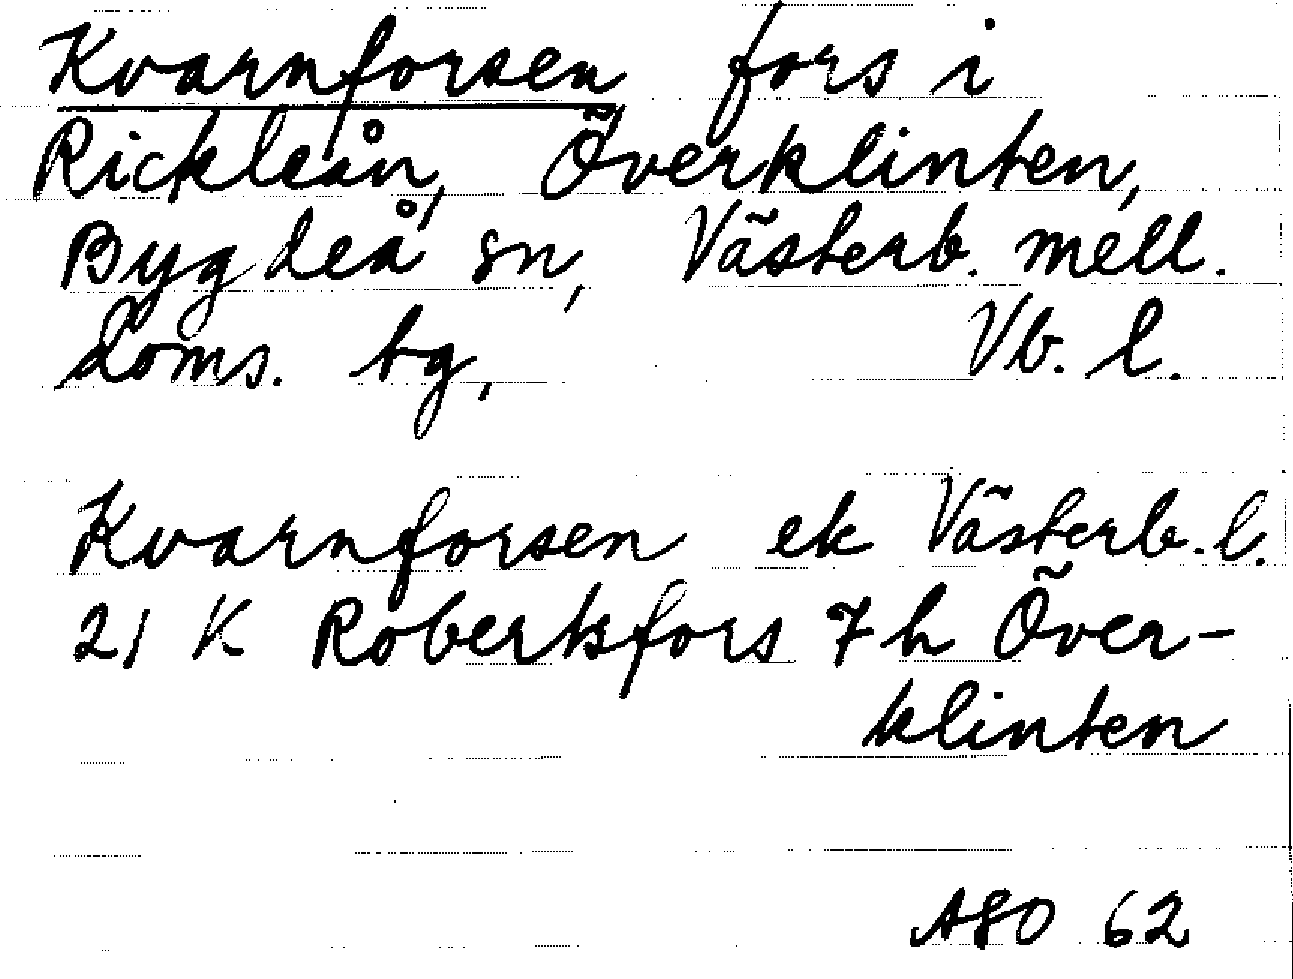 Kvarnforsen fors i
Rickleån, Överklinten,
Bygdeå sn, Västerb. mell.
doms. tg, Vb. l.
Kvarnforsen ek Västerb. l.
21 K Robertsfors 7 h Över-
klinten
ASO 62